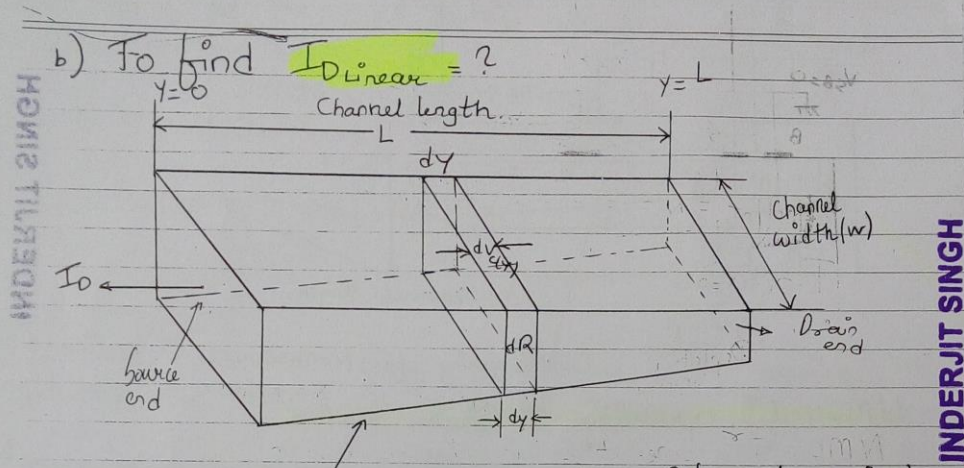 b) To find I_D Linear = ?
y=0
y= L
Channel length.
L
dy
Channel
width (w)
dv
ID
dR
Drain
end
Source
end
dy
INDERJIT SINGH
INDERJIT SINGH